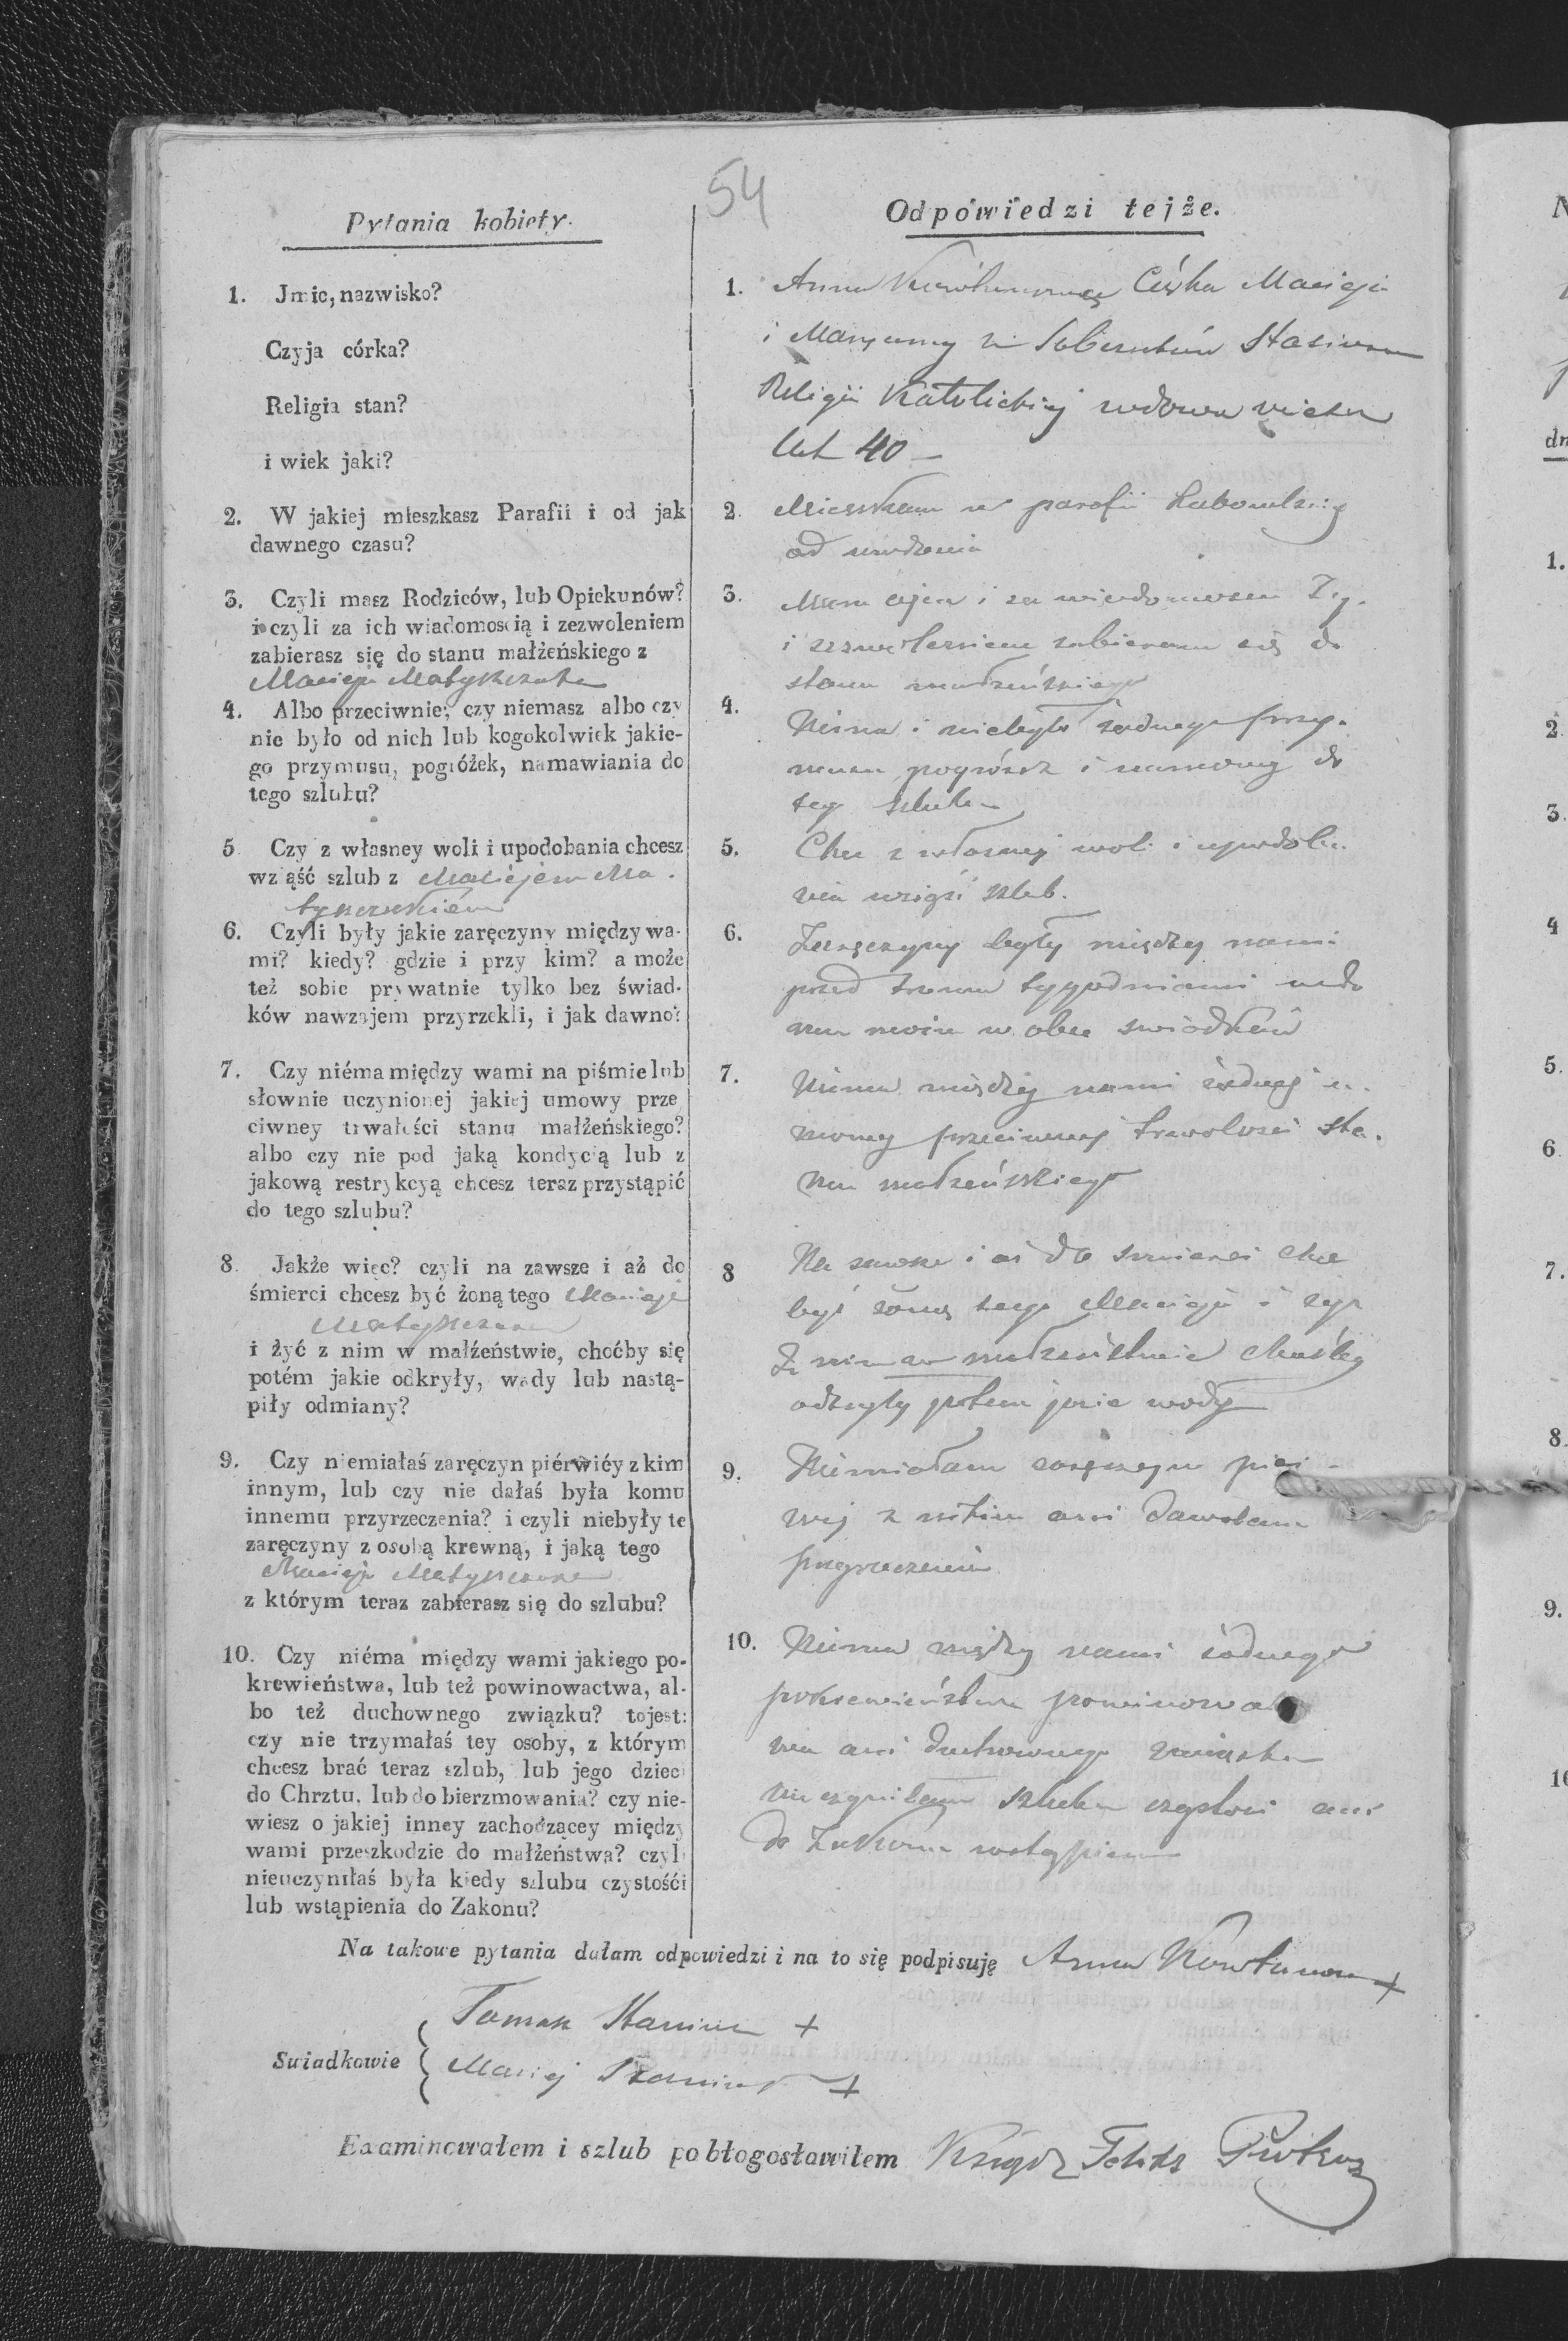 54
Pytania kobiety.
Odpowiedzi tejże.
1. Jmie, nazwisko?
Czyja córka?
Religia stan?
i wiek jaki?
1. Anna Córka Macieja
i Maryanny
Religii Katolickiej wdowa wieku
lat 40 –
2. W jakiej mieszkasz Parafii i od jak
dawnego czasu?
2. Mieszkam w parafii
od urodzenia
3. Czyli masz Rodziców, lub Opiekunów?
i czyli za ich wiadomoscią i zezwoleniem
zabierasz się do stanu małżeńskiego z
Macieja Matyszczaka
3. Mam ojca i za
i zezwoleniem zabieram się do
stanu małżeńskiego
4. Albo przeciwnie; czy niemasz albo czy
nie było od nich lub kogokolwiek jakie-
go przymusu, pogróżek, namawiania do
tego szlubu?
4. Niema i niebyło żadnego przy-
musu pogróżek i namowy do
tego szlubu
5 Czy z własney woli i upodobania chcesz
wziąść szlub z Maciejem Ma-
tyszczakiem
5. Chce z własnej woli i upodoba-
nia wziąść szlub.
6. Czyli były jakie zaręczyny między wa-
mi? kiedy? gdzie i przy kim? a może
też sobie prywatnie tylko bez świad-
ków nawzajem przyrzekli, i jak dawno?
6. Zaręczyny były między nami
przed trzema tygodniami w do
mu moim w obec swiadków
7. Czy niéma między wami na piśmie lub
słownie uczynionej jakiej umowy prze
ciwney trwałości stanu małżeńskiego?
albo czy nie pod jaką kondycią lub z
jakową restrykcyą chcesz teraz przystąpić
do tego szlubu?
7. Niema między nami żadnej u-
mowy przeciwnej trwałosci sta-
nu małżeńskiego
8. Jakże więc? czyli na zawsze i aż do
śmierci chcesz być żoną tego Macieja
Matyszczaka
i żyć z nim w małżeństwie, choćby się
potém jakie odkryły, wady lub nastą-
piły odmiany?
8 Na zawsze i aż do smierci chce
być żoną tego Macieja i żyć
z nim w małżeństwie chociby
odkryły potem jakie wady
9. Czy niemiałaś zaręczyn piérwiéy z kim
innym, lub czy nie dałaś była komu
innemu przyrzeczenia? i czyli niebyły te
zaręczyny z osobą krewną, i jaką tego
Macieja Matyszczaka
z którym teraz zabierasz się do szlubu?
9. Niemiałam zaręczyn pier-
wej z nikim ani dawałam
przyrzeczenia
10. Czy niéma między wami jakiego po-
krewieństwa, lub też powinowactwa, al-
bo też duchownego związku? tojest:
czy nie trzymałaś tey osoby, z którym
chcesz brać teraz szlub, lub jego dzieci
do Chrztu, lub do bierzmowania? czy nie-
wiesz o jakiej inney zachodzącey między
wami przeszkodzie do małżeństwa? czyli
nieuczyniłaś była kiedy szlubu czystośći
lub wstąpienia do Zakonu?
10. Niema między nami żadnego
pokrewieństwa
ani duchownego związku
nie czyniłam szlubu czystosci ani
do Zakonu wstąpienia
Na takowe pytania dałam odpowiedzi i na to się podpisuję Anna +
Swiadkowie { Tomasz +
Maciej +
Examinowałem i szlub pobłogosławiłem Ksiądz Feliks
dn
1.
2
3.
4
5.
6
7.
8.
9.